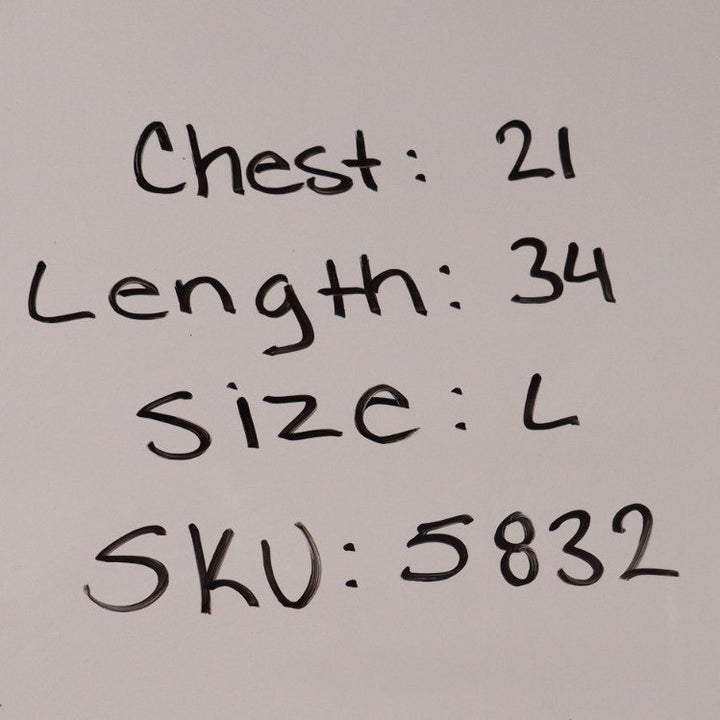 Chest: 21
Length: 34
Size: L
SKU: 5832